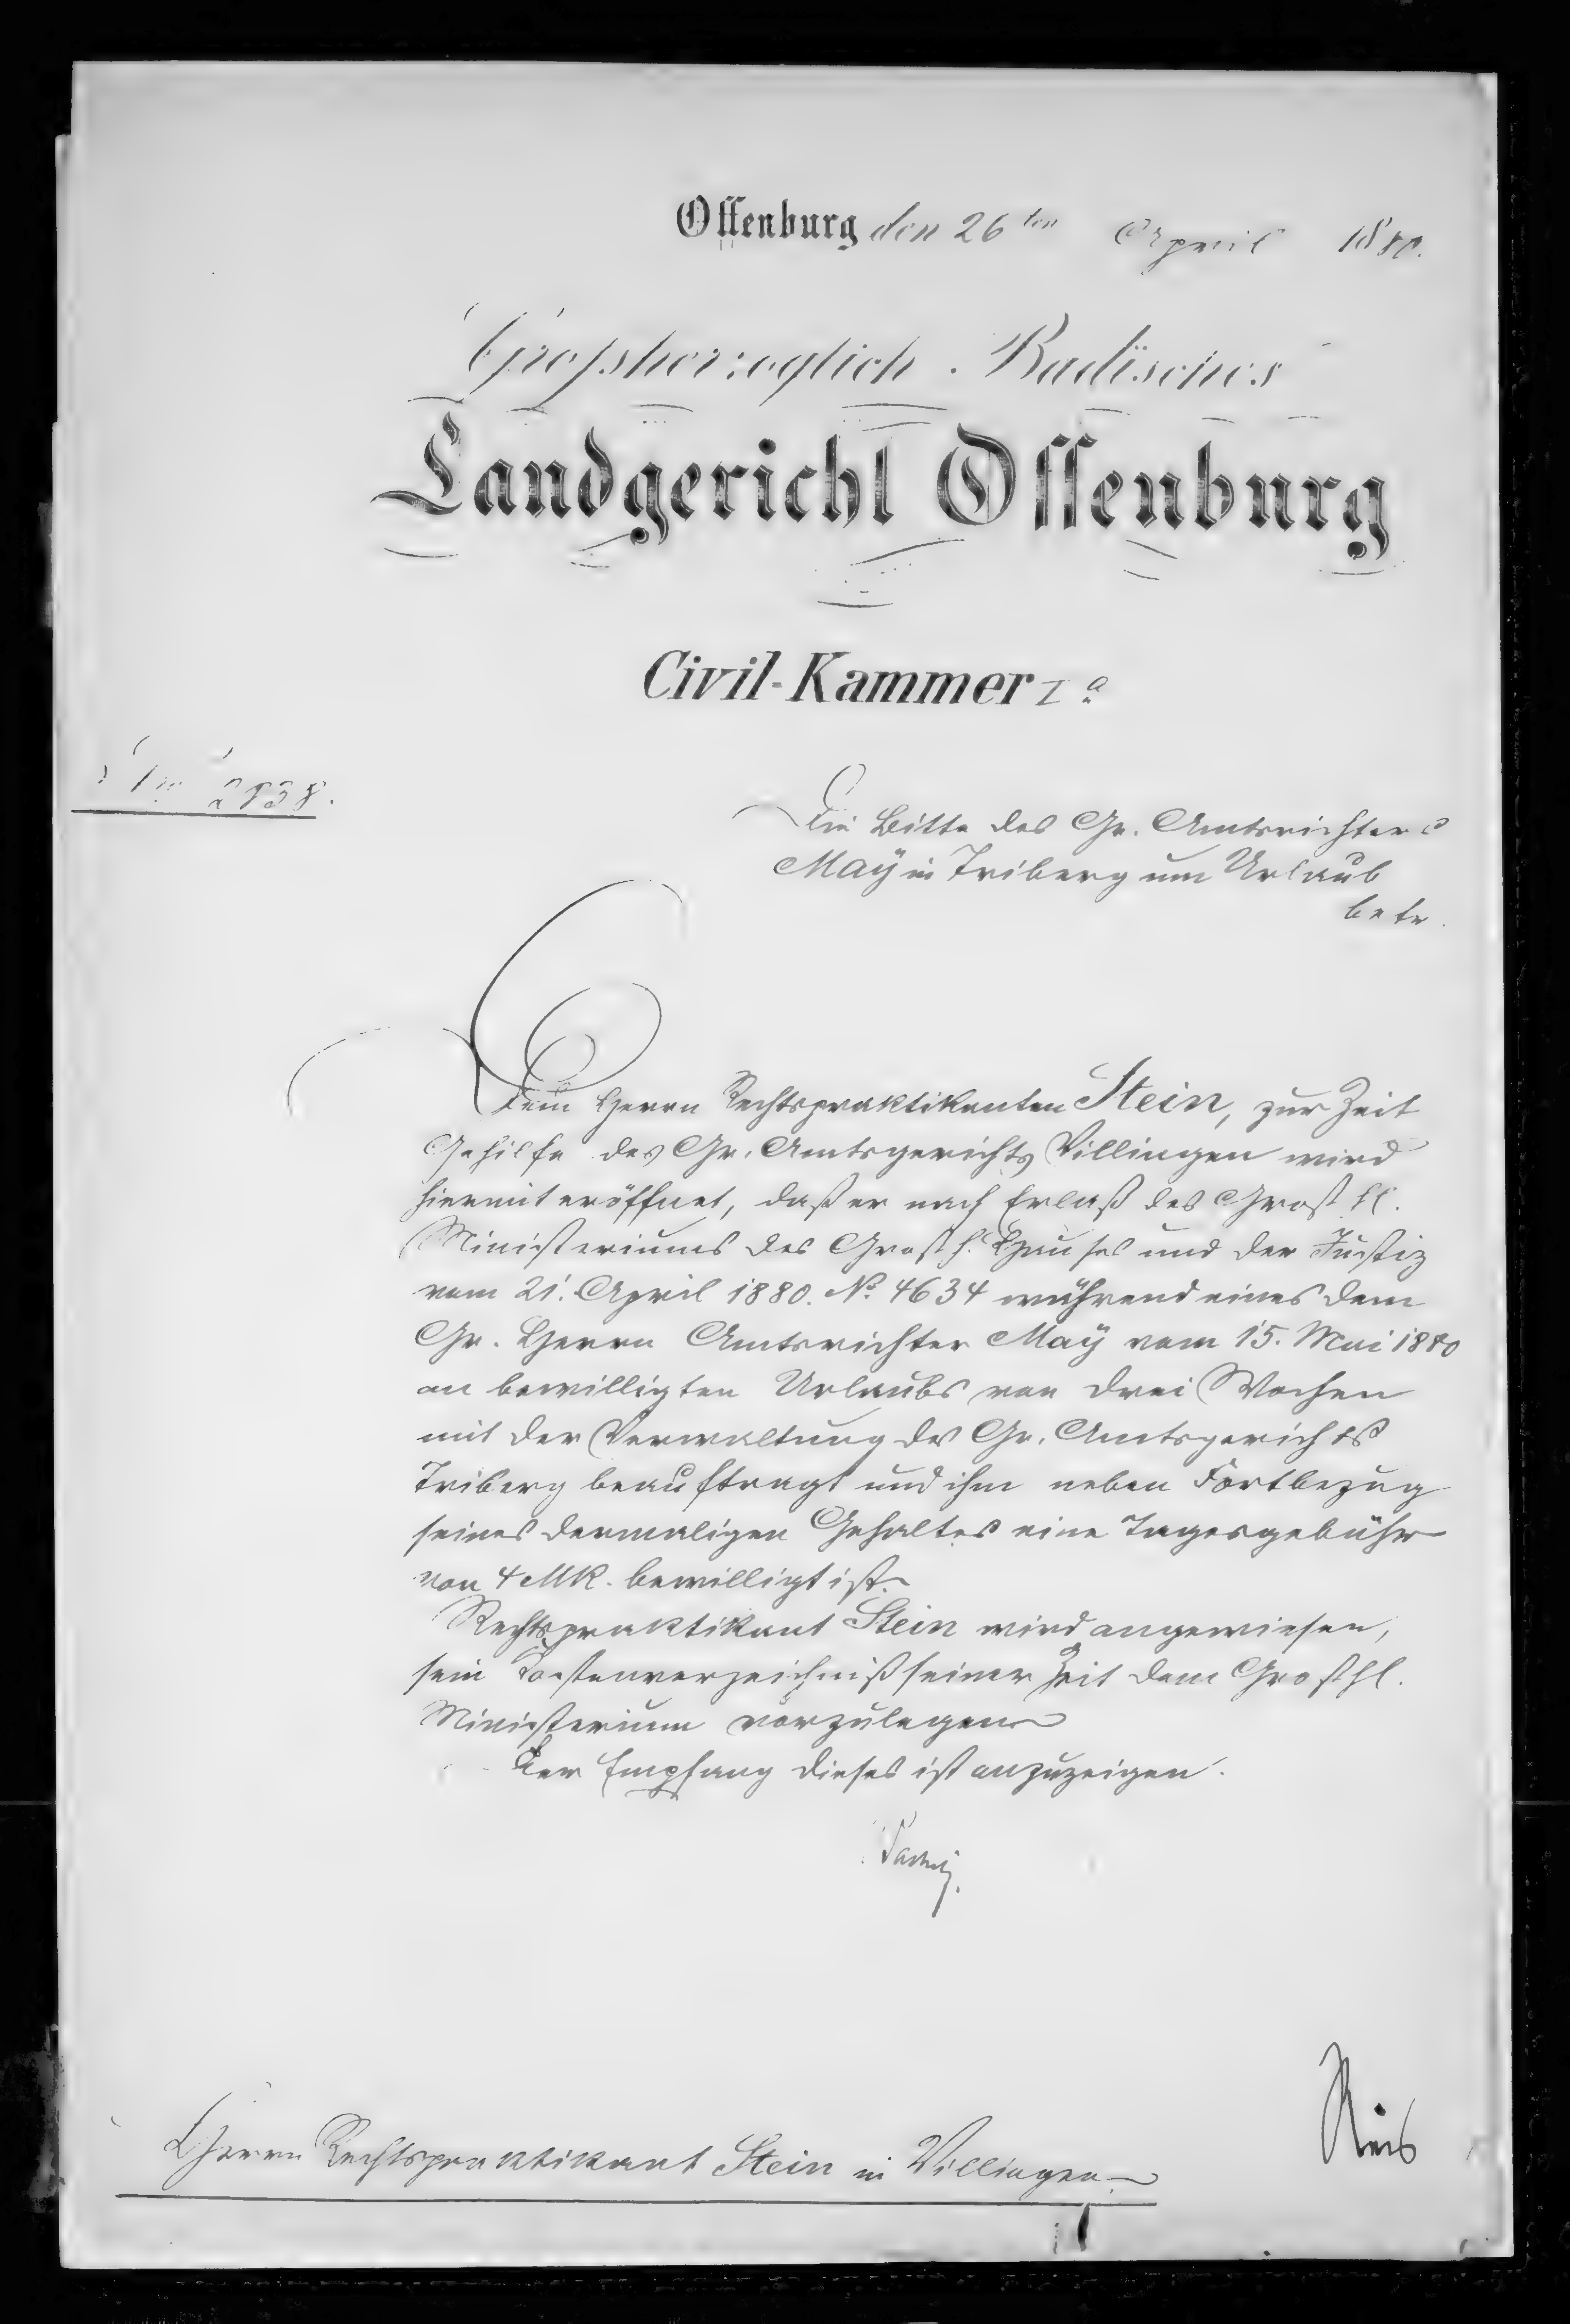 Offenburg den 26ten April 1880.
Grossherzoglich Badisches
Landgericht Offenburg
Civil-Kammer Ia
No 2838.
Die Bitte des Gr. Amtsrichters
Maÿ in Triberg um Urlaub
betr.
Dem Herrn Rechtspraktikanten Stein, zur Zeit
Gehilfe des Gr. Amtsgerichts Villingen wird
hiermit eröffnet, daß er nach Erlaß des Großhl.
Ministeriums des Großh. Hauses und der Justiz
vom 21. April 1880. No. 4634 während eines dem
Gr. Herrn Amtsrichter Maÿ vom 15. Mai 1880
an bewilligten Urlaubs von drei Wochen
mit der Verwaltung des Gr. Amtsgerichts
Triberg beauftragt und ihm neben Fortbezug
seines dermaligen Gehaltes eine Tagesgebühr
von 4 MK. bewilligt ist.
Rechtspraktikant Stein wird angewiesen,
sein Kostenverzeichniß seiner Zeit dem Großhl.
Ministerium vorzulegen
Der Empfang dieses ist anzuzeigen.
Herrn Rechtspraktikant Stein in Villingen.